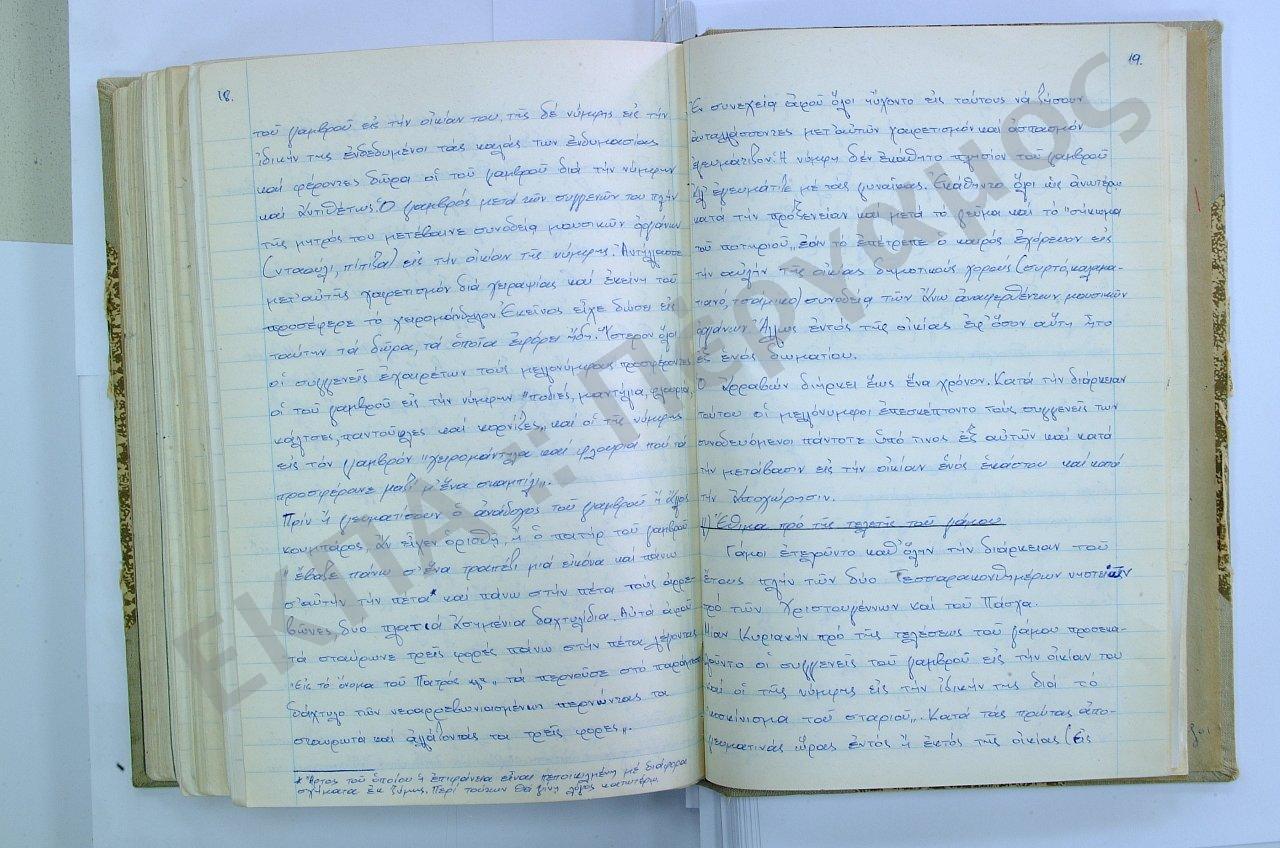 18.
τοῦ γαμβροῦ εἰς τήν οἰκίαν του, τῆς δέ νύμφης εἰς τήν
ἰδικήν της ἐνδεδυμένοι τάς καλάς των ἐνδυμασίας
καί φέροντες δῶρα οἱ τοῦ γαμβροῦ διά τήν νύμφην
καί ἀντιθέτως. Ὁ γαμβρός μετά τῶν συγγενῶν του πλήν
τῆς μητρός του μετέβαινε συνοδεία μουσικῶν ὀργάνων
(νταούλι, πίπιζα) εἰς τήν οἰκίαν τῆς νύμφης. Ἀντήλλασσε
μετ' αὐτῆς χαιρετισμόν διά χειραψίας καί ἐκείνη τοῦ
προσέφερε τό χειρομάνδηλον. Ἐκεῖνος εἶχε δώσει εἰς
ταύτην τά δῶρα, τά ὁποῖα ἐφόρει ἤδη. Ὕστερον ὅλοι
οἱ συγγενεῖς ἐχαιρέτων τούς μελλονύμφους προσφέροντες
οἱ τοῦ γαμβροῦ εἰς τήν νύμφην "ποδιές, μαντήλια, φλουριά,
κάλτσες, παντοῦφλες καί κορνίζες„ καί οἱ τῆς νύμφης
εἰς τόν γαμβρόν "χειρομάντηλα καί φλουριά πού τά
προσφέρανε μαζί μ' ἕνα σκαμπίλι„.
Πρίν ἤ γευματίσουν ὁ ἀνάδοχος τοῦ γαμβροῦ ἤ ἄλλος
κουμπάρος, ἄν εἶχεν ὁρισθῆ, ἤ ὁ πατήρ τοῦ γαμβροῦ
"ἔβαζε πάνω σ' ἕνα τραπέζι μιά εἰκόνα καί πάνω
σ' αὐτήν τήν πέτα* καί πάνω στήν πέτα τούς ἀρρε-
βῶνες, δυο πλατιά ἀσημένια δαχτυλίδια. Αὐτά ἀφοῦ
τά σταύρωνε τρεῖς φορές πάνω στήν πέτα λέγοντας
"Εἰς τό ὄνομα τοῦ Πατρός κλ.„ τά περνοῦσε στό παράμεσο
δάχτυλο τῶν νεοαρρεβωνιασμένων περνώντας τα
σταυρωτά καί ἀλλάζοντας τα τρεῖς φορές„.
* Ἄρτος τοῦ ὁποίου ἡ ἐπιφάνεια εἶναι πεποικιλμένη μέ διάφορα
σχήματα ἐκ ζύμης. Περί τούτων θά γίνῃ λόγος κατωτέρω.
19.
Ἐν συνεχεία ἀφοῦ ὅλοι ηὔχοντο εἰς τούτους νά ζήσουν
ἀνταλλάσσοντες μετ' αὐτῶν χαιρετισμόν καί ἀσπασμόν
ἐγευμάτιζον. Ἡ νύμφη δέν ἐκάθητο πλησίον τοῦ γαμβροῦ
ἀλλ' ἐγευμάτιζε μέ τάς γυναῖκας. Ἐκάθηντο ὅλοι ὡς ἀνωτέρω
κατά τήν προξενείαν καί μετά τό γεῦμα καί τό "σήκωμα
τοῦ ποτηριοῦ„, ἐάν τό ἐπέτρεπε ὁ καιρός ἐχόρευον εἰς
τήν αὐλήν τῆς οἰκίας δημοτικούς χορούς (συρτό, καλαμα-
τιανό, τσάμικο) συνοδεία τῶν ἄνω ἀναφερθέντων μουσικῶν
ὀργάνων. Ἄλλως ἐντός τῆς οἰκίας ἐφ' ὅσον αὕτη ἦτο
ἐξ ἑνός δωματίου.
Ὁ ἀρραβών διήρκει ἕως ἕνα χρόνον. Κατά τήν διάρκειαν
τούτου οἱ μελλόνυμφοι ἐπεσκέπτοντο τούς συγγενεῖς των
συνοδευόμενοι πάντοτε ὑπό τινος ἐξ αὐτῶν καί κατά
τήν μετάβασιν εἰς τήν οἰκίαν ἑνός ἑκάστου καί κατά
τήν ἀποχώρησιν.
γ) Ἔθιμα πρό τῆς τελετῆς τοῦ γάμου
Γάμοι ἐτελοῦντο καθ' ὅλην τήν διάρκειαν τοῦ
ἔτους πλήν τῶν δύο Τεσσαρακονθημέρων νηστειῶν
πρό τῶν Χριστουγέννων καί τοῦ Πάσχα.
Μίαν Κυριακήν πρό τῆς τελέσεως τοῦ γάμου προσεκα-
λοῦντο οἱ συγγενεῖς τοῦ γαμβροῦ εἰς τήν οἰκίαν του
καί οἱ τῆς νύμφης εἰς τήν ἰδικήν της διά τό
"κοσκίνισμα τοῦ σταριοῦ„. Κατά τάς πρώτας ἀπο-
γευματινάς ὥρας ἐντός ἤ ἐκτός τῆς οἰκίας (Εἰς
ΕΚΠΑ :: Πέργαμος